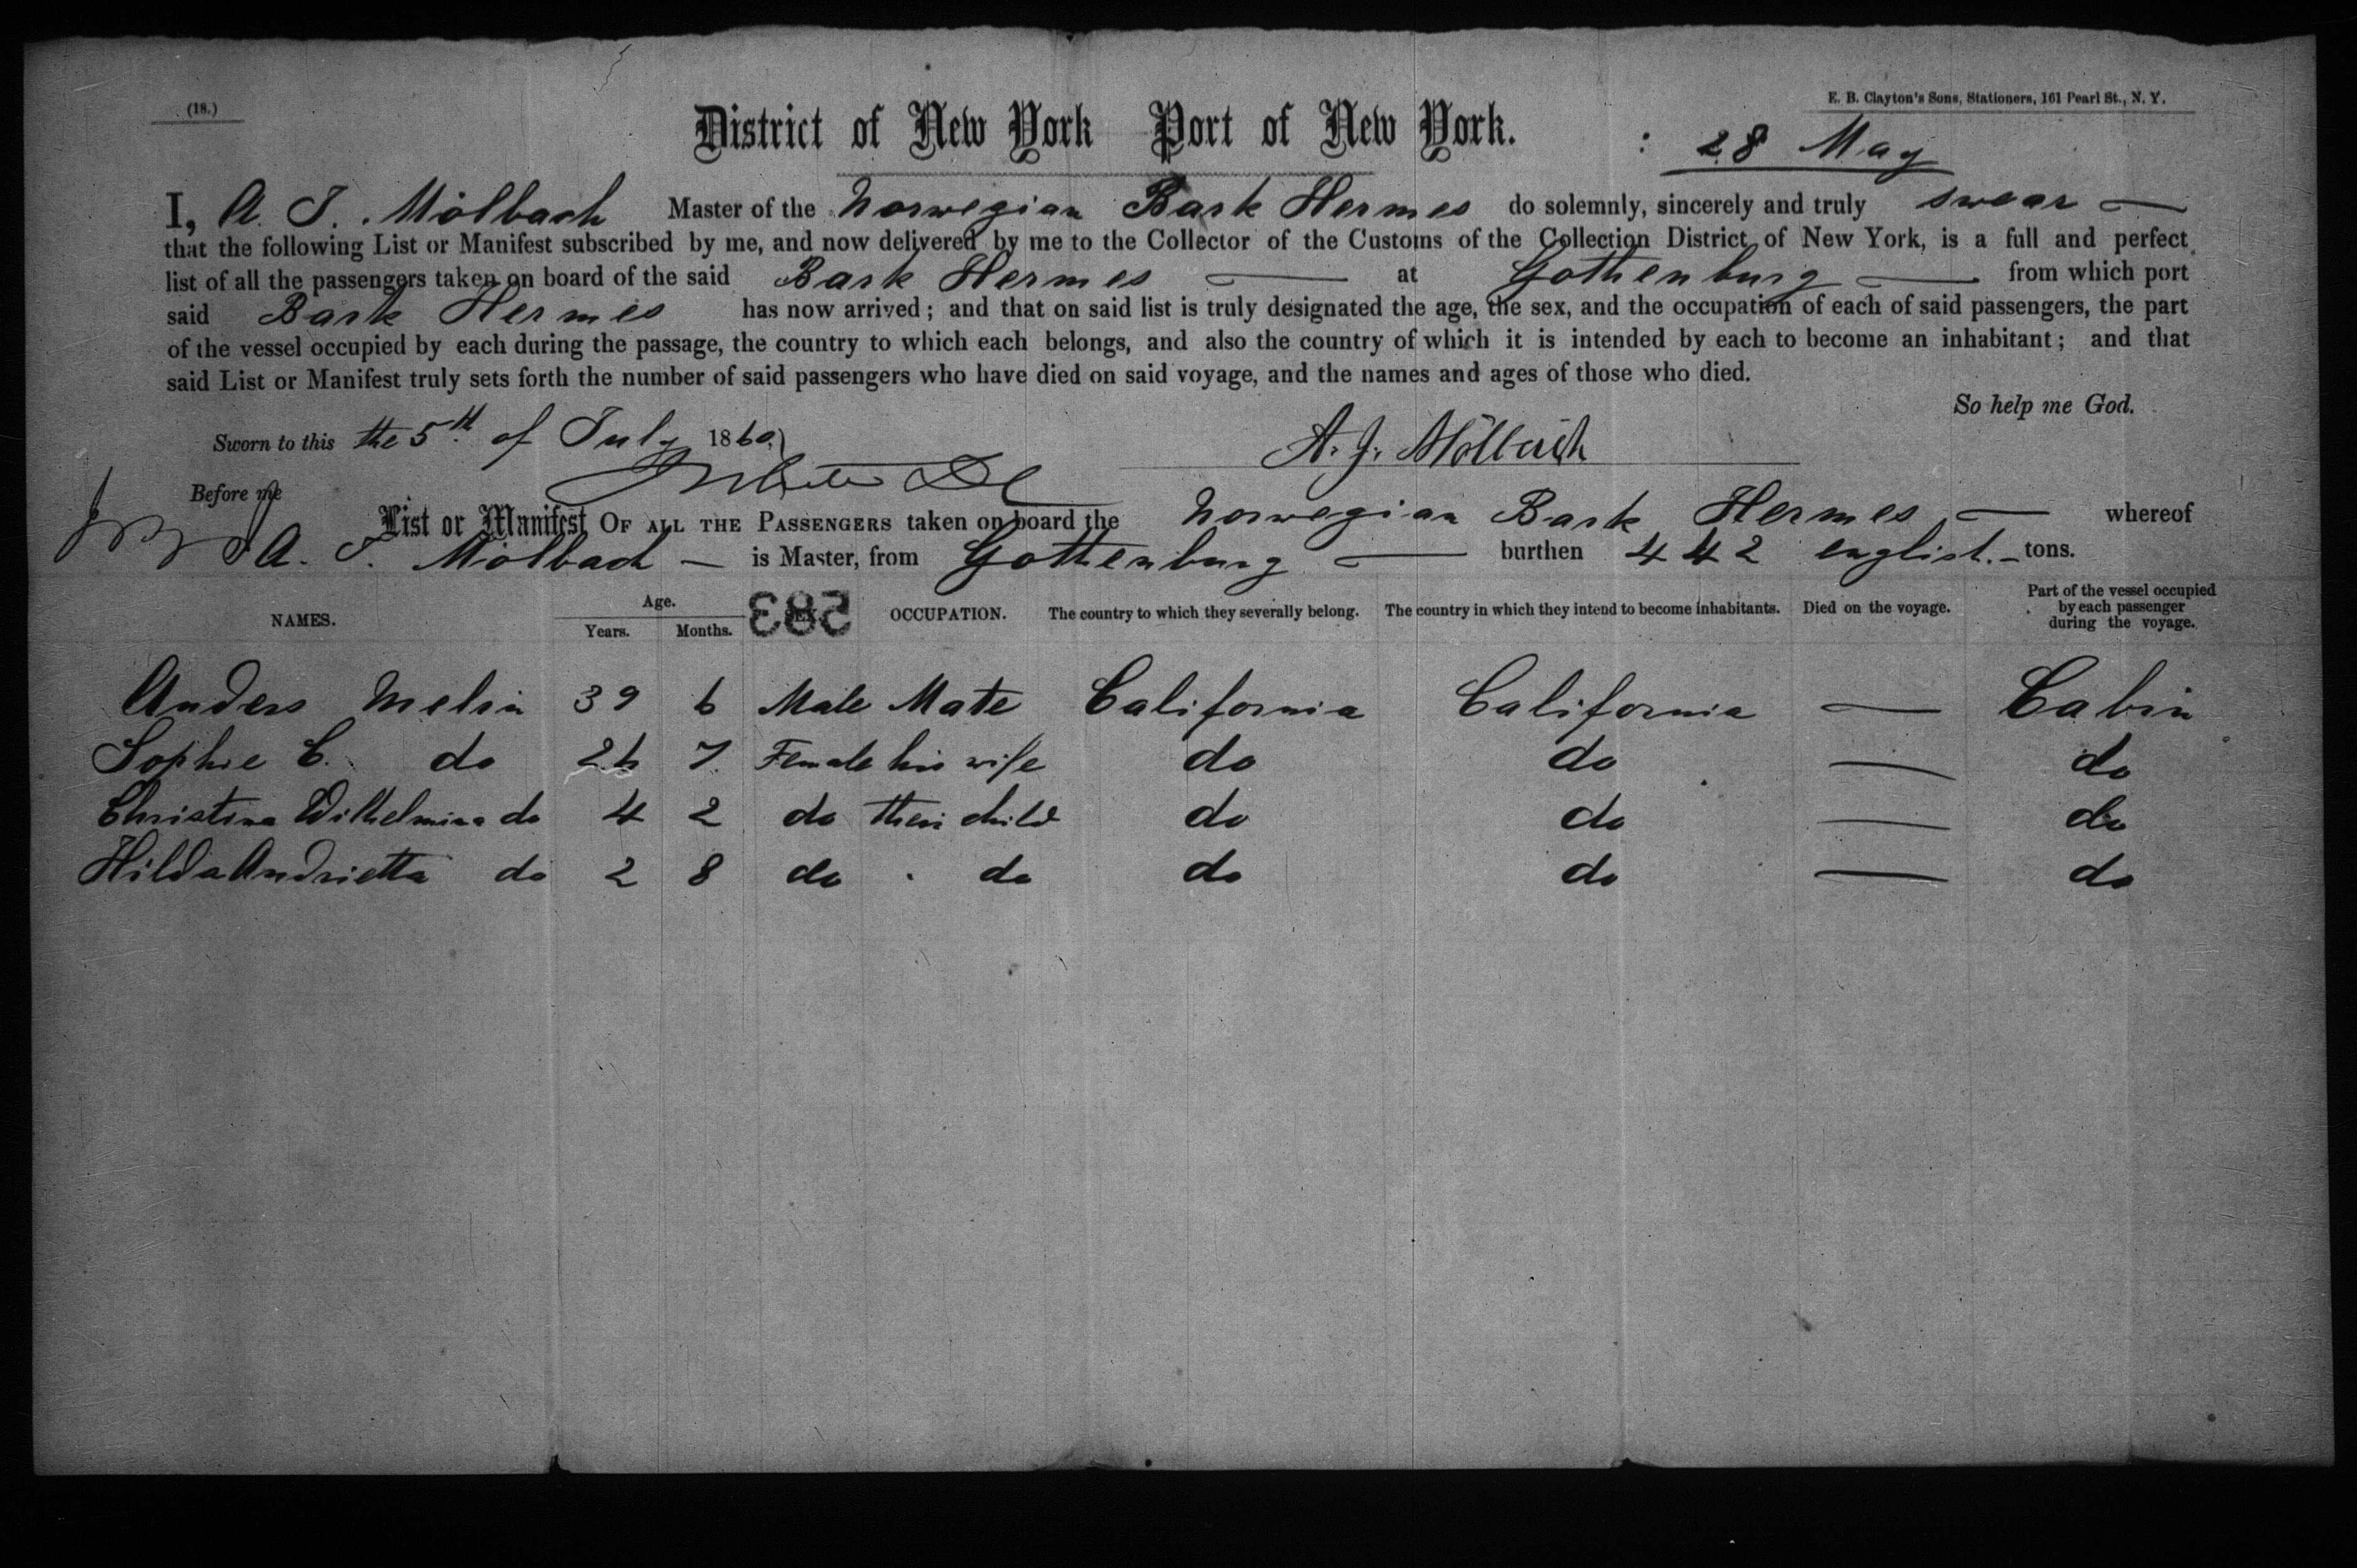 (18.)
E. B. Clayton's Sons, Stationers, 161 Pearl St., N. Y.
District of New York Port of New York.
28 May
I, A. J. Mölbach Master of the Norwegian Bark Hermes do solemnly, sincerely and truly swear —
that the following List or Manifest subscribed by me, and now delivered by me to the Collector of the Customs of the Collection District of New York, is a full and perfect
list of all the passengers taken on board of the said Bark Hermes — at Gothenburg — from which port
said Bark Hermes has now arrived; and that on said list is truly designated the age, the sex, and the occupation of each of said passengers, the part
of the vessel occupied by each during the passage, the country to which each belongs, and also the country of which it is intended by each to become an inhabitant; and that
said List or Manifest truly sets forth the number of said passengers who have died on said voyage, and the names and ages of those who died.
So help me God.
Sworn to this the 5th. of July 1860.
A. J. Mölbach
Before me
List or Manifest OF ALL THE PASSENGERS taken on board the Norwegian Bark Hermes — whereof
A. J. Mölbach — is Master, from Gothenburg — burthen 442 english. – tons.
NAMES. Age. Years. Months. 583 OCCUPATION. The country to which they severally belong. The country in which they intend to become inhabitants. Died on the voyage. Part of the vessel occupied by each passenger during the voyage.
Anders Melin 39 6 Male Mate California California — Cabin
Sophie C. do 26 7 Female his wife do do — do
Christina Wilhelmina do 4 2 do their child do do — do
Hilda Andrietta do 2 8 do do do do — do